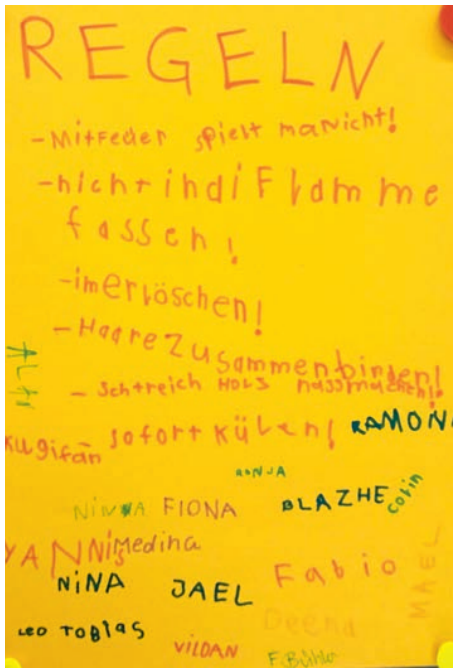 REGELN
-Mitfeuer spielt maNicht!
-nicht indi Flamme
fassen!
-imerlöschen!
-Haare Zusammenbinden!
- Schtreich HOLS nassmachen!!
sofort külen!
RAMONA
ALTI
Kugifan
RONJA
NINVA FIONA
BLAZHE
Colin
YANNiS
Medina
NiNA
JAEL
Fabio
MAEL
Deena
LEO TOBIAS
ViLDAN
F.Bühler